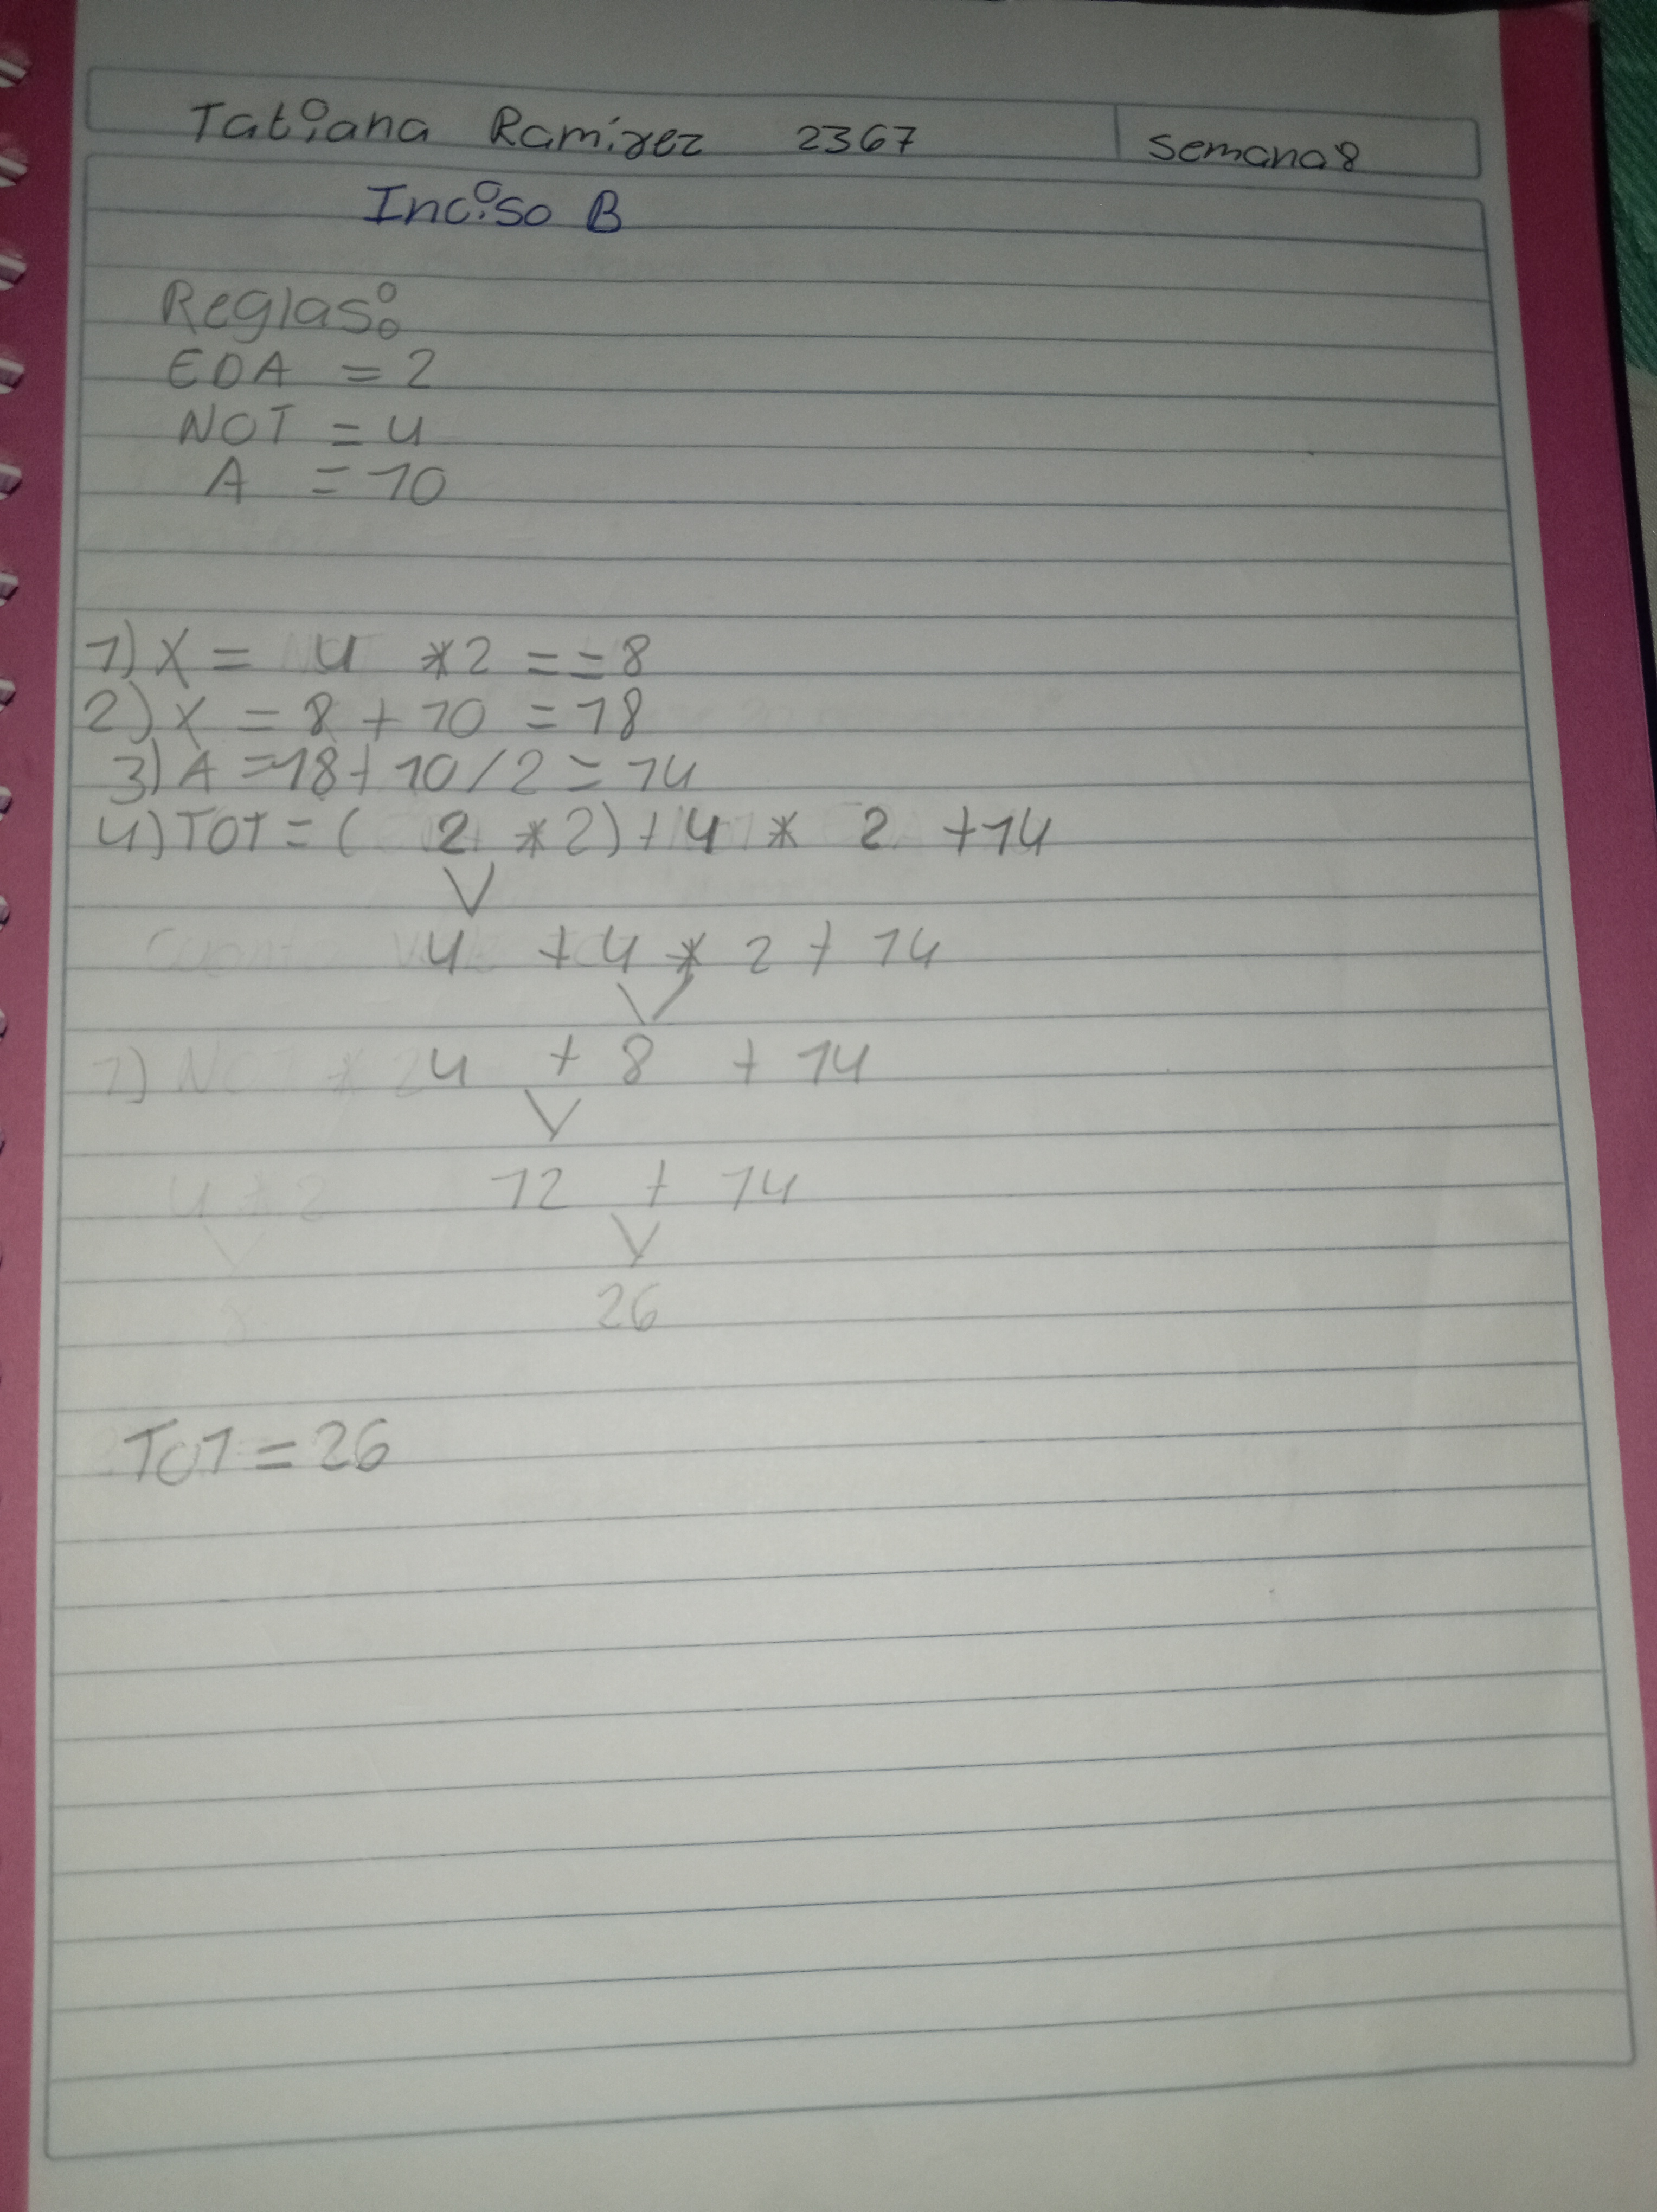 Tatiana Ramírez 2367 Semana 8
Inciso B
Reglas:
EDA = 2
NOT = 4
A = 10
1) X = 4 * 2 = = 8
2) X = 8 + 10 = 18
3) A = 18 + 10 / 2 = 14
4) TOT = ( 2 * 2) + 4 * 2 + 14
4 + 4 * 2 + 14
4 + 8 + 14
12 + 14
26
TOT = 26